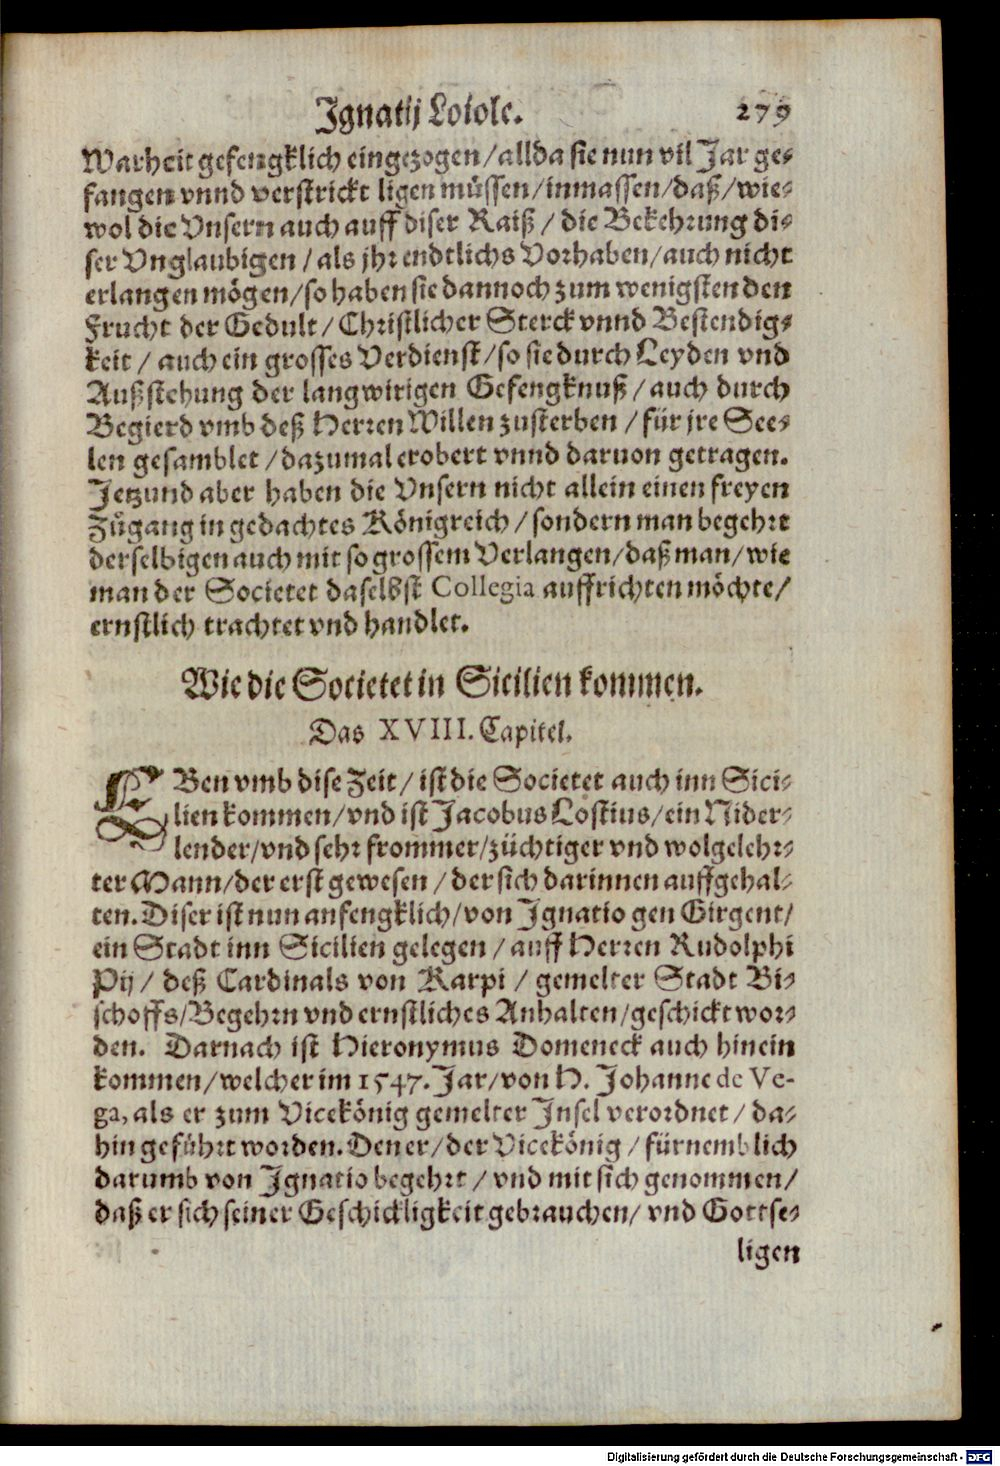 Ignatij Loiole. 279
Warheit gefengklich eingezogen/allda sie nun vil Jar ge-
fangen vnnd verstrickt ligen müssen/inmassen/daß/wie-
wol die Vnsern auch auff diser Raiß/die Bekehrung di-
ser Vnglaubigen/als jhr endtlichs Vorhaben/auch nicht
erlangen mögen/so haben sie dannoch zum wenigsten den
Frucht der Gedult/Christlicher Sterck vnnd Bestendig-
keit/auch ein grosses Verdienst/so sie durch Leyden vnd
Außstehung der langwirigen Gefengknuß/auch durch
Begierd vmb deß Herren Willen zusterben/für jre See-
len gesamblet/dazumal erobert vnnd daruon getragen.
Jetzund aber haben die Vnsern nicht allein einen freyen
Zůgang in gedachtes Königreich/sondern man begehrt
derselbigen auch mit so grossem Verlangen/daß man/wie
man der Societet daselbst Collegia auffrichten möchte/
ernstlich trachtet vnd handlet.
Wie die Societet in Sicilien kommen.
Das XVIII. Capitel.
EBen vmb dise Zeit/ist die Societet auch inn Sici-
lien kommen/vnd ist Jacobus Lostius/ein Nider-
lender/vnd sehr frommer/züchtiger vnd wolgelehr-
ter Mann/der erst gewesen/der sich darinnen auffgehal-
ten. Diser ist nun anfengklich/von Ignatio gen Girgent/
ein Stadt inn Sicilien gelegen/auff Herren Rudolphi
Pij/deß Cardinals von Karpi/gemelter Stadt Bi-
schoffs/Begehrn vnd ernstliches Anhalten/geschickt wor-
den. Darnach ist Hieronymus Domeneck auch hinein
kommen/welcher im 1547. Jar/von H. Johanne de Ve-
ga, als er zum Vicekönig gemelter Insel verordnet/da-
hin geführt worden. Den er/der Vicekönig/fürnemblich
darumb von Ignatio begehrt/vnd mit sich genommen/
daß er sich seiner Geschickligkeit gebrauchen/vnd Gottse-
ligen
Digitalisierung gefördert durch die Deutsche Forschungsgemeinschaft - DFG